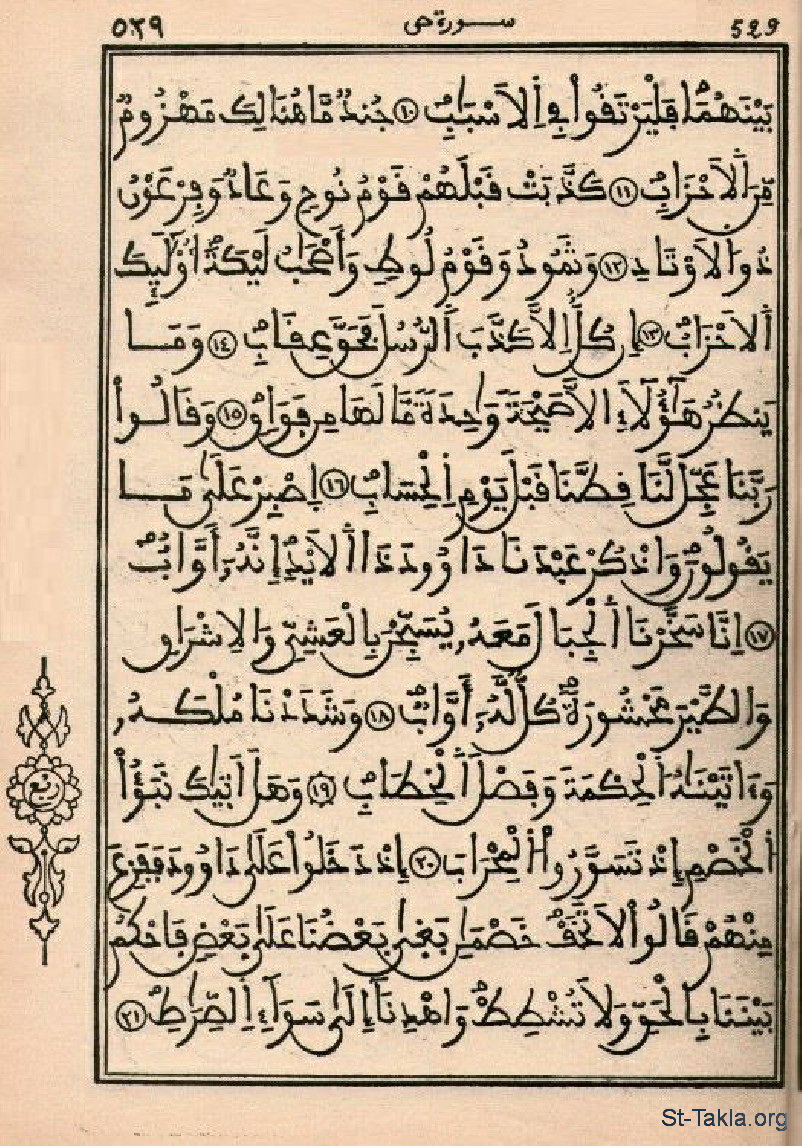 ٥٢٩ سورة صٓ 529
بَيْنَهُمَا فَلْيَرْتَقُواْ فِے اِلَاسْبَٰبِ ١٠ جُندٞ مَّا هُنَالِكَ مَهْزُومٞ
مِّنَ اَلَاحْزَابِ ١١ كَذَّبَتْ قَبْلَهُمْ قَوْمُ نُوحٖ وَعَادٞ وَفِرْعَوْنُ
ذُو اَلَاوْتَادِ ١٢ وَثَمُودُ وَقَوْمُ لُوطٖ وَأَصْحَٰبُ لَيْكَةَ أُوْلَٰٓئِكَ
اَلَاحْزَابُ ١٣ إِن كُلٌّ اِلَّا كَذَّبَ اَلرُّسُلَ فَحَقَّ عِقَابِ ١٤ وَمَا
يَنظُرُ هَٰٓؤُلَآءِ اِلَّا صَيْحَةٗ وَٰحِدَةٗ مَّا لَهَا مِن فَوَاقٖ ١٥ وَقَالُواْ
رَبَّنَا عَجِّل لَّنَا قِطَّنَا قَبْلَ يَوْمِ اِلْحِسَابِ ١٦ اِصْبِرْ عَلَىٰ مَا
يَقُولُونَ وَاذْكُرْ عَبْدَنَا دَاوُۥدَ ذَا اَلَايْدِ إِنَّهُۥٓ أَوَّابٌ
١٧ اِنَّا سَخَّرْنَا اَلْجِبَالَ مَعَهُۥ يُسَبِّحْنَ بِالْعَشِيِّ وَالِاشْرَاقِ
وَالطَّيْرَ مَحْشُورَةٗ كُلّٞ لَّهُۥٓ أَوَّابٞ ١٨ وَشَدَدْنَا مُلْكَهُۥ
وَءَاتَيْنَٰهُ اَلْحِكْمَةَ وَفَصْلَ اَلْخِطَابِ ١٩ وَهَلَ اَتَيٰكَ نَبَؤُاْ
اُلْخَصْمِ إِذْ تَسَوَّرُواْ اُلْمِحْرَابَ ٢٠ إِذْ دَخَلُواْ عَلَىٰ دَاوُۥدَ فَفَزِعَ
مِنْهُمْ قَالُواْ لَا تَخَفْ خَصْمَٰنِ بَغَىٰ بَعْضُنَا عَلَىٰ بَعْضٖ فَاحْكُم
بَيْنَنَا بِالْحَقِّ وَلَا تُشْطِطْ وَاهْدِنَآ إِلَىٰ سَوَآءِ اِلصِّرَٰطِ ٢١
ربع
St-Takla.org